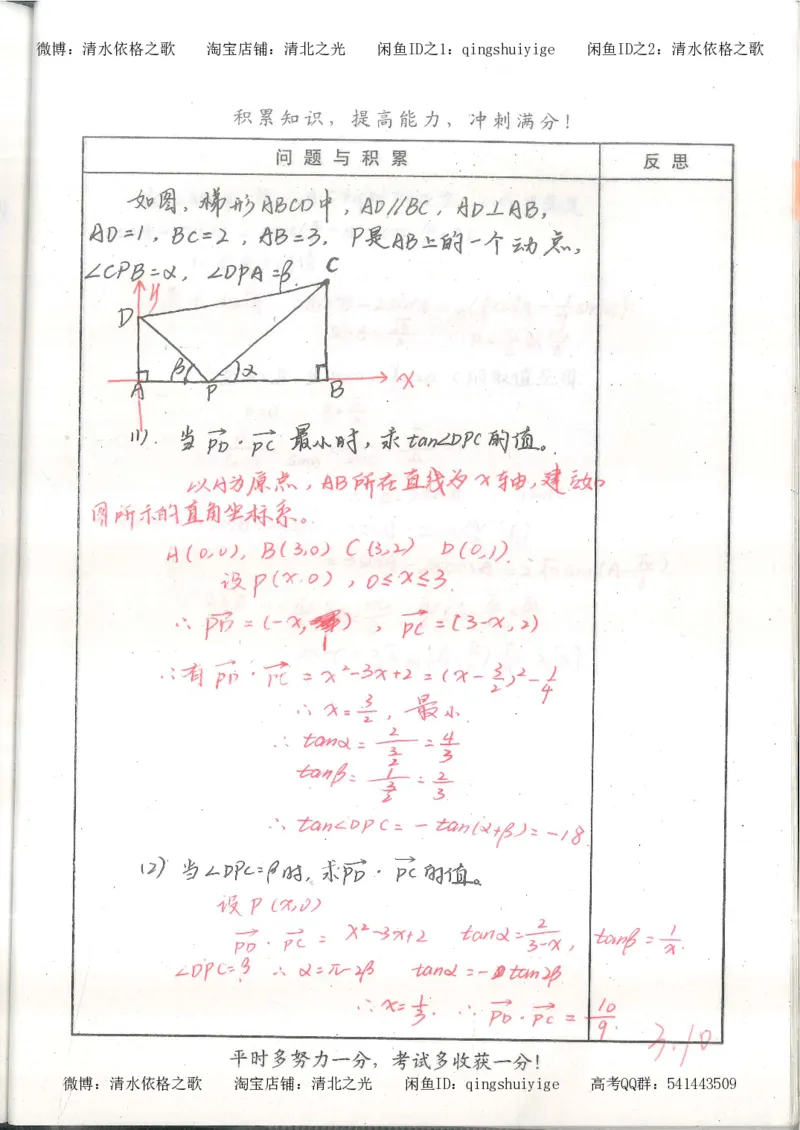 微博：清水依格之歌 淘宝店铺：清北之光 闲鱼ID之1：qingshuiyige 闲鱼ID之2：清水依格之歌
积累知识，提高能力，冲刺满分！
问题与积累 反思
如图，梯形ABCD中，AD//BC，AD⊥AB，
AD=1，BC=2，AB=3，P是AB上的一个动点，
∠CPB=α，∠DPA=β.
C
y
D
β α
A P B x
(1). 当PD·PC最小时，求tan∠DPC的值。
以A为原点，AB所在直线为x轴，建立如
图所示的直角坐标系。
A(0,0), B(3,0) C(3,2) D(0,1)
设P(x,0)，0≤x≤3.
∴PD=(-x,1)，PC=(3-x,2)
∴有PD·PC=x²-3x+2=(x-3/2)²-1/4
∴x=3/2，最小.
∴tanα=2/(3/2)=4/3
tanβ=1/(3/2)=2/3
∴tan∠DPC=-tan(α+β)=-18
(2) 当∠DPC=β时，求PD·PC的值。
设P(x,0)
PD·PC=x²-3x+2 tanα=2/(3-x), tanβ=1/x.
∠DPC=β ∴α=π-2β tanα=-tan2β
∴x=1/3. ∴PD·PC=10/9.
3.10
平时多努力一分，考试多收获一分！
微博：清水依格之歌 淘宝店铺：清北之光 闲鱼ID：qingshuiyige 高考QQ群：541443509